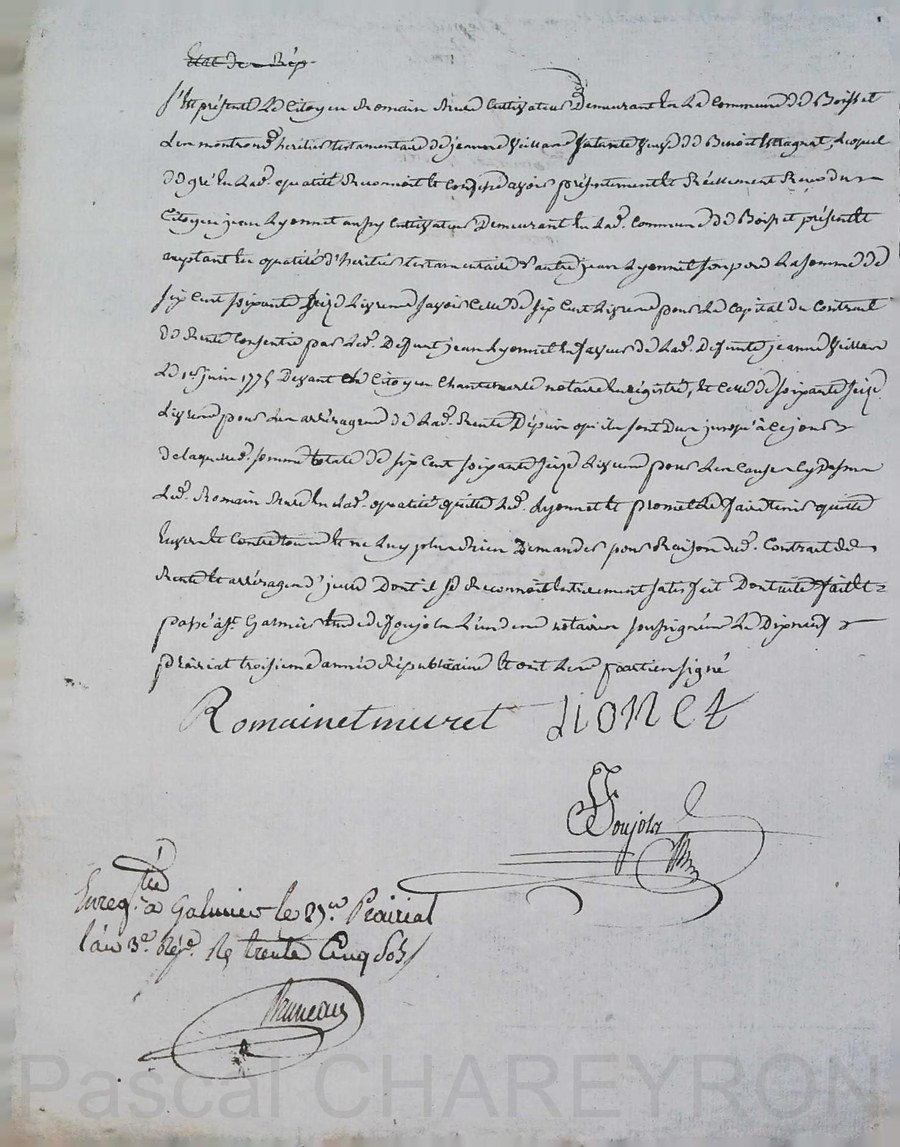 S'est présenté Le Citoyen Romain Muret Cultivateur Demeurant En La Commune de Boisset
Les montrond heritier testamentaire de jeanne Veillard veuve de Benoit, Lequel
de gré En Lad. qualité Reconnoit Et Confesse avoir présentement Et Réellement Reçu du
Citoyen jean Lyonnet aussy Cultivateur Demeurant En Lad. Commune de Boisset présent Et
acceptant En qualité d'heritier testamentaire d'autre jean Lyonnet son pere La somme de
six Cent soixante seize Livres savoir Celle de six Cent Livres pour Le Capital du Contrat
de Rente Consentie par Led. Defunt jean Lyonnet En faveur de Lad. Defunte jeanne Veillard
Le 1er juin 1775 Devant Citoyen Chantemerle notaire Enregistré, Et Celle de soixante seize
Livres pour Les arrérages de Lad. Rente Depuis qu'ils sont Dus jusqu'à Ce jour
de laquelle somme totale de six Cent soixante seize Livres pour Les Causes Cy Dessus
Led. Romain Muret En Lad. qualité quitte Led. Lyonnet Et promet Le faire tenir quitte
Envers Et Contre tous Et ne Luy plus Rien Demander pour Raison dud. Contrat de
Rente Et arrérages d'jceux Dont il se Reconnoit Entierement satisfait Dont acte fait Et
passé à St. Galmier Etude de Soujols L'un des notaires soussignés Le Dixneuf
prairial troisieme année Républicaine Et ont Les parties signé
Romainet muret Lionet
Soujols
Enregtré à Galmier le 29 Prairial
l'an 3e. Rép. Rç trente Cinq sols
Bruneau
Pascal CHAREYRON